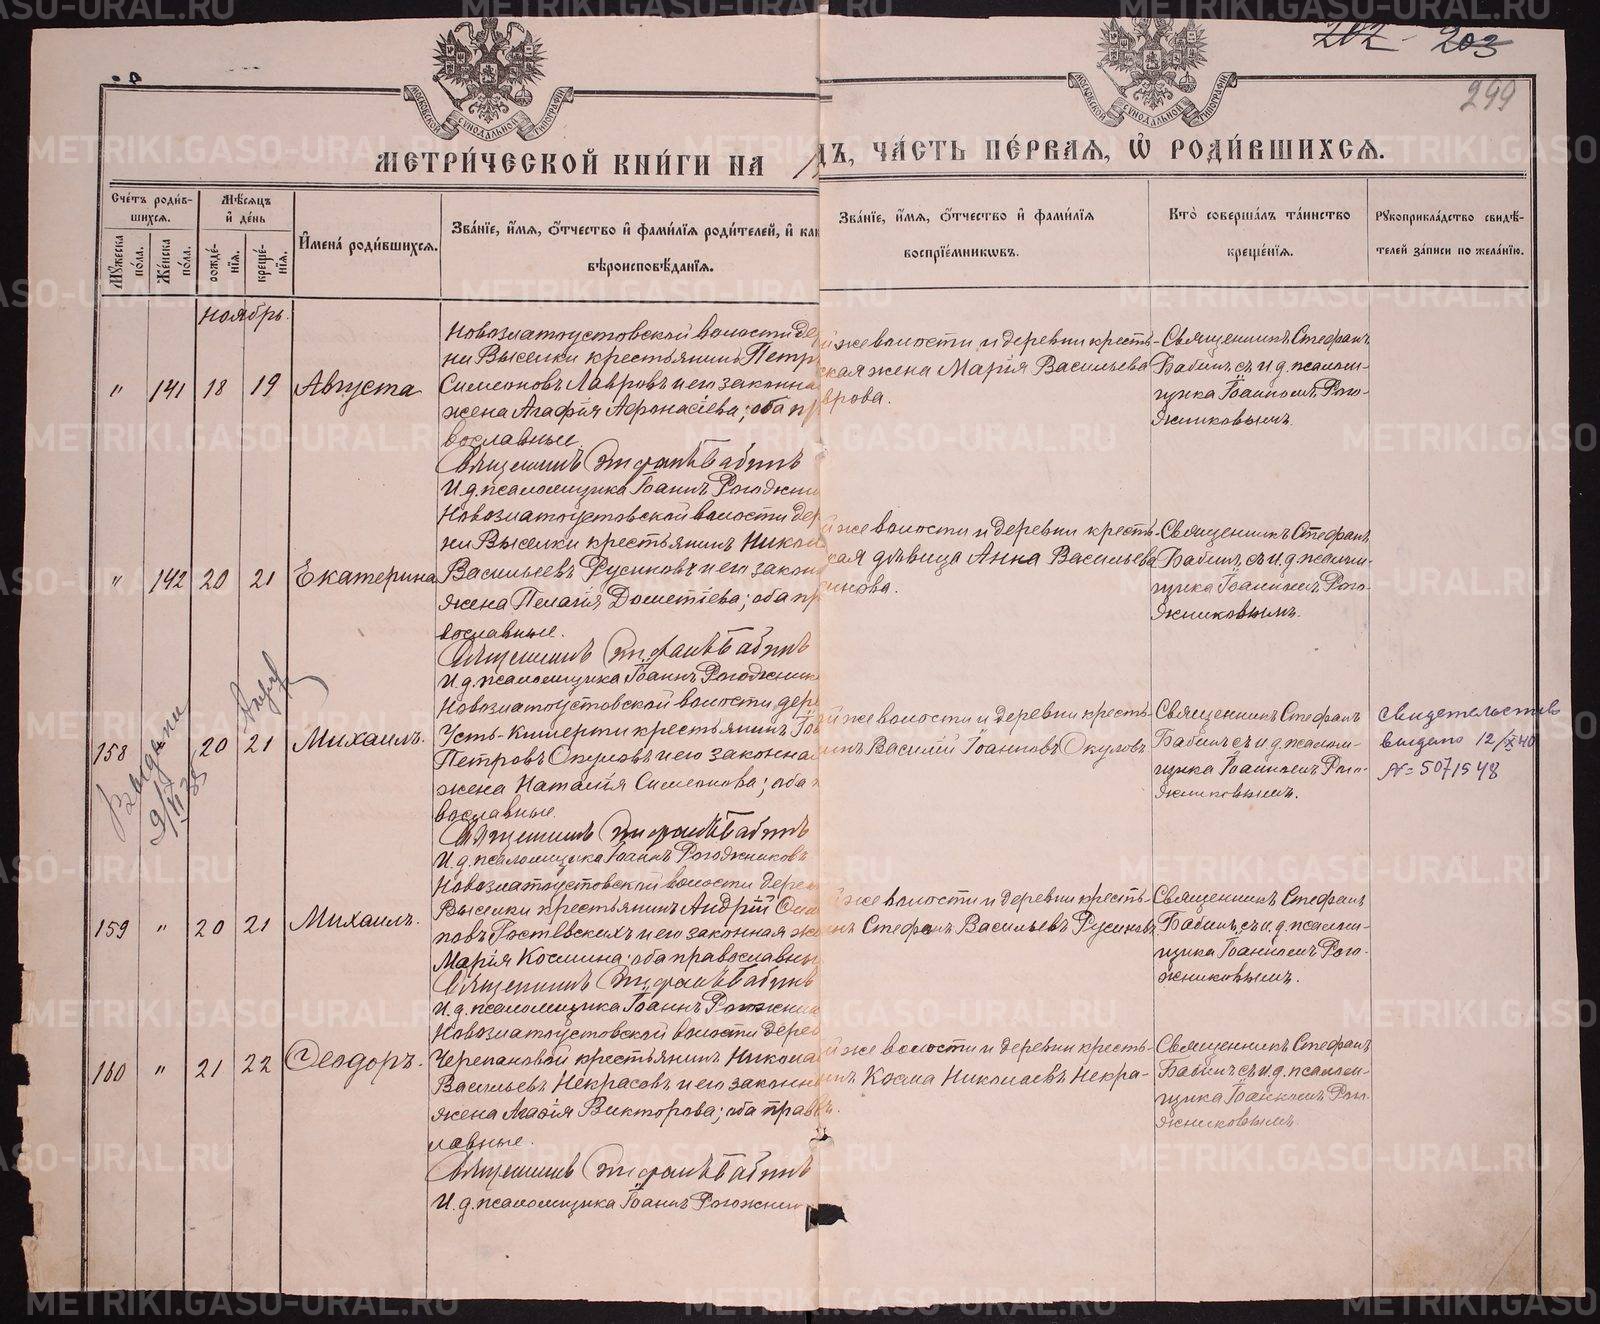 202 203
299
МОСКОВСКОЙ СѴНОДАЛЬНОЙ ТИПОГРАФІИ
МОСКОВСКОЙ СѴНОДАЛЬНОЙ ТИПОГРАФІИ
МЕТРИ́ЧЕСКОЙ КНИ́ГИ НА
ДЪ, ЧА́СТЬ ПЕ́РВАЯ, Ѡ҆ РОДИ́ВШИХСЯ.
Сче́тъ роди́в-
шихся.
Мꙋжеска по́ла.
Же́нска по́ла.
Мѣ́сяцъ
и҆ де́нь
рожде́-
нїя.
креще́-
нїя.
И҆мена̀ роди́вшихся.
Зва́нїе, и҆́мя, о҆́тчество и҆ фами́лїя роди́телей, и҆ как
вѣроисповѣ́данїя.
Зва́нїе, и҆́мя, о҆́тчество и҆ фами́лїя
воспрїе́мникѡвъ.
Кто̀ соверша́лъ та́инство
креще́нїя.
Рꙋкоприкла́дство свидѣ́-
телей за́писи по жела́нїю.
Ноябрь.
" 141 18 19 Августа
Новозлатоустовской волости де
ни Выселки крестьянинъ Петръ
Симеоновъ Лавровъ и его законна
жена Агафія Афонасіева; оба п
вославные.
Священникъ Стефанъ Бабинъ
И. д. псаломщика Іоаннъ Рогожни
й же волости и деревни кресть-
ская жена Марія Васильева
врова.
Священникъ Стефанъ
Бабинъ съ и. д. псалом-
щика Іоанномъ Рого-
жниковымъ.
" 142 20 21 Екатерина
Новозлатоустовской волости дер
ни Выселки крестьянинъ Никол
Васильевъ Русиновъ и его закон
жена Пелагія Дометіева; оба пр
вославные.
Священникъ Стефанъ Бабинъ
И. д. псаломщика Іоаннъ Рогожник
й же волости и деревни кресть-
кая дѣвица Анна Васильева
инова.
Священникъ Стефанъ
Бабинъ, съ и. д. псалом-
щика Іоанномъ Рого-
жниковымъ.
158 20 21 Михаилъ.
Выданы
9/VII 38
Новозлатоустовской волости дере
Усть-Кишерти крестьянинъ Іоа
Петровъ Окуловъ и его законна
жена Наталія Симеонова; оба
вославные.
Священникъ Стефанъ Бабинъ
И. д. псаломщика Іоаннъ Рогожниковъ
й же волости и деревни кресть-
инъ Василій Іоанновъ Окуловъ
Священникъ Стефанъ
Бабинъ съ и. д. псалом-
щика Іоанномъ Рого-
жниковымъ.
Свидетельство
выдано 12/X 40
№ 5071548
159 " 20 21 Михаилъ.
Новозлатоустовской волости дерев
Выселки крестьянинъ Андрій
повъ Гостевскихъ и его законная же
Марія Космина; оба православны
Священникъ Стефанъ Бабинъ
И. д. псаломщика Іоаннъ Рогожник
й же волости и деревни кресть-
инъ Стефанъ Васильевъ Русиновъ
Священникъ Стефанъ
Бабинъ, съ и. д. псалом-
щика Іоанномъ Рого-
жниковымъ.
160 " 21 22 Ѳеодоръ.
Новозлатоустовской волости дерев
Черепановой крестьянинъ Никола
Васильевъ Некрасовъ и его законн
жена Агафія Викторова; оба прав
лавные.
Священникъ Стефанъ Бабинъ
И. д. псаломщика Іоаннъ Рогожни
й же волости и деревни кресть-
инъ Косма Николаевъ Некра-
въ.
Священникъ Стефанъ
Бабинъ съ и. д. псалом-
щика Іоанномъ Рого-
жниковымъ.
METRIKI.GASO-URAL.RU